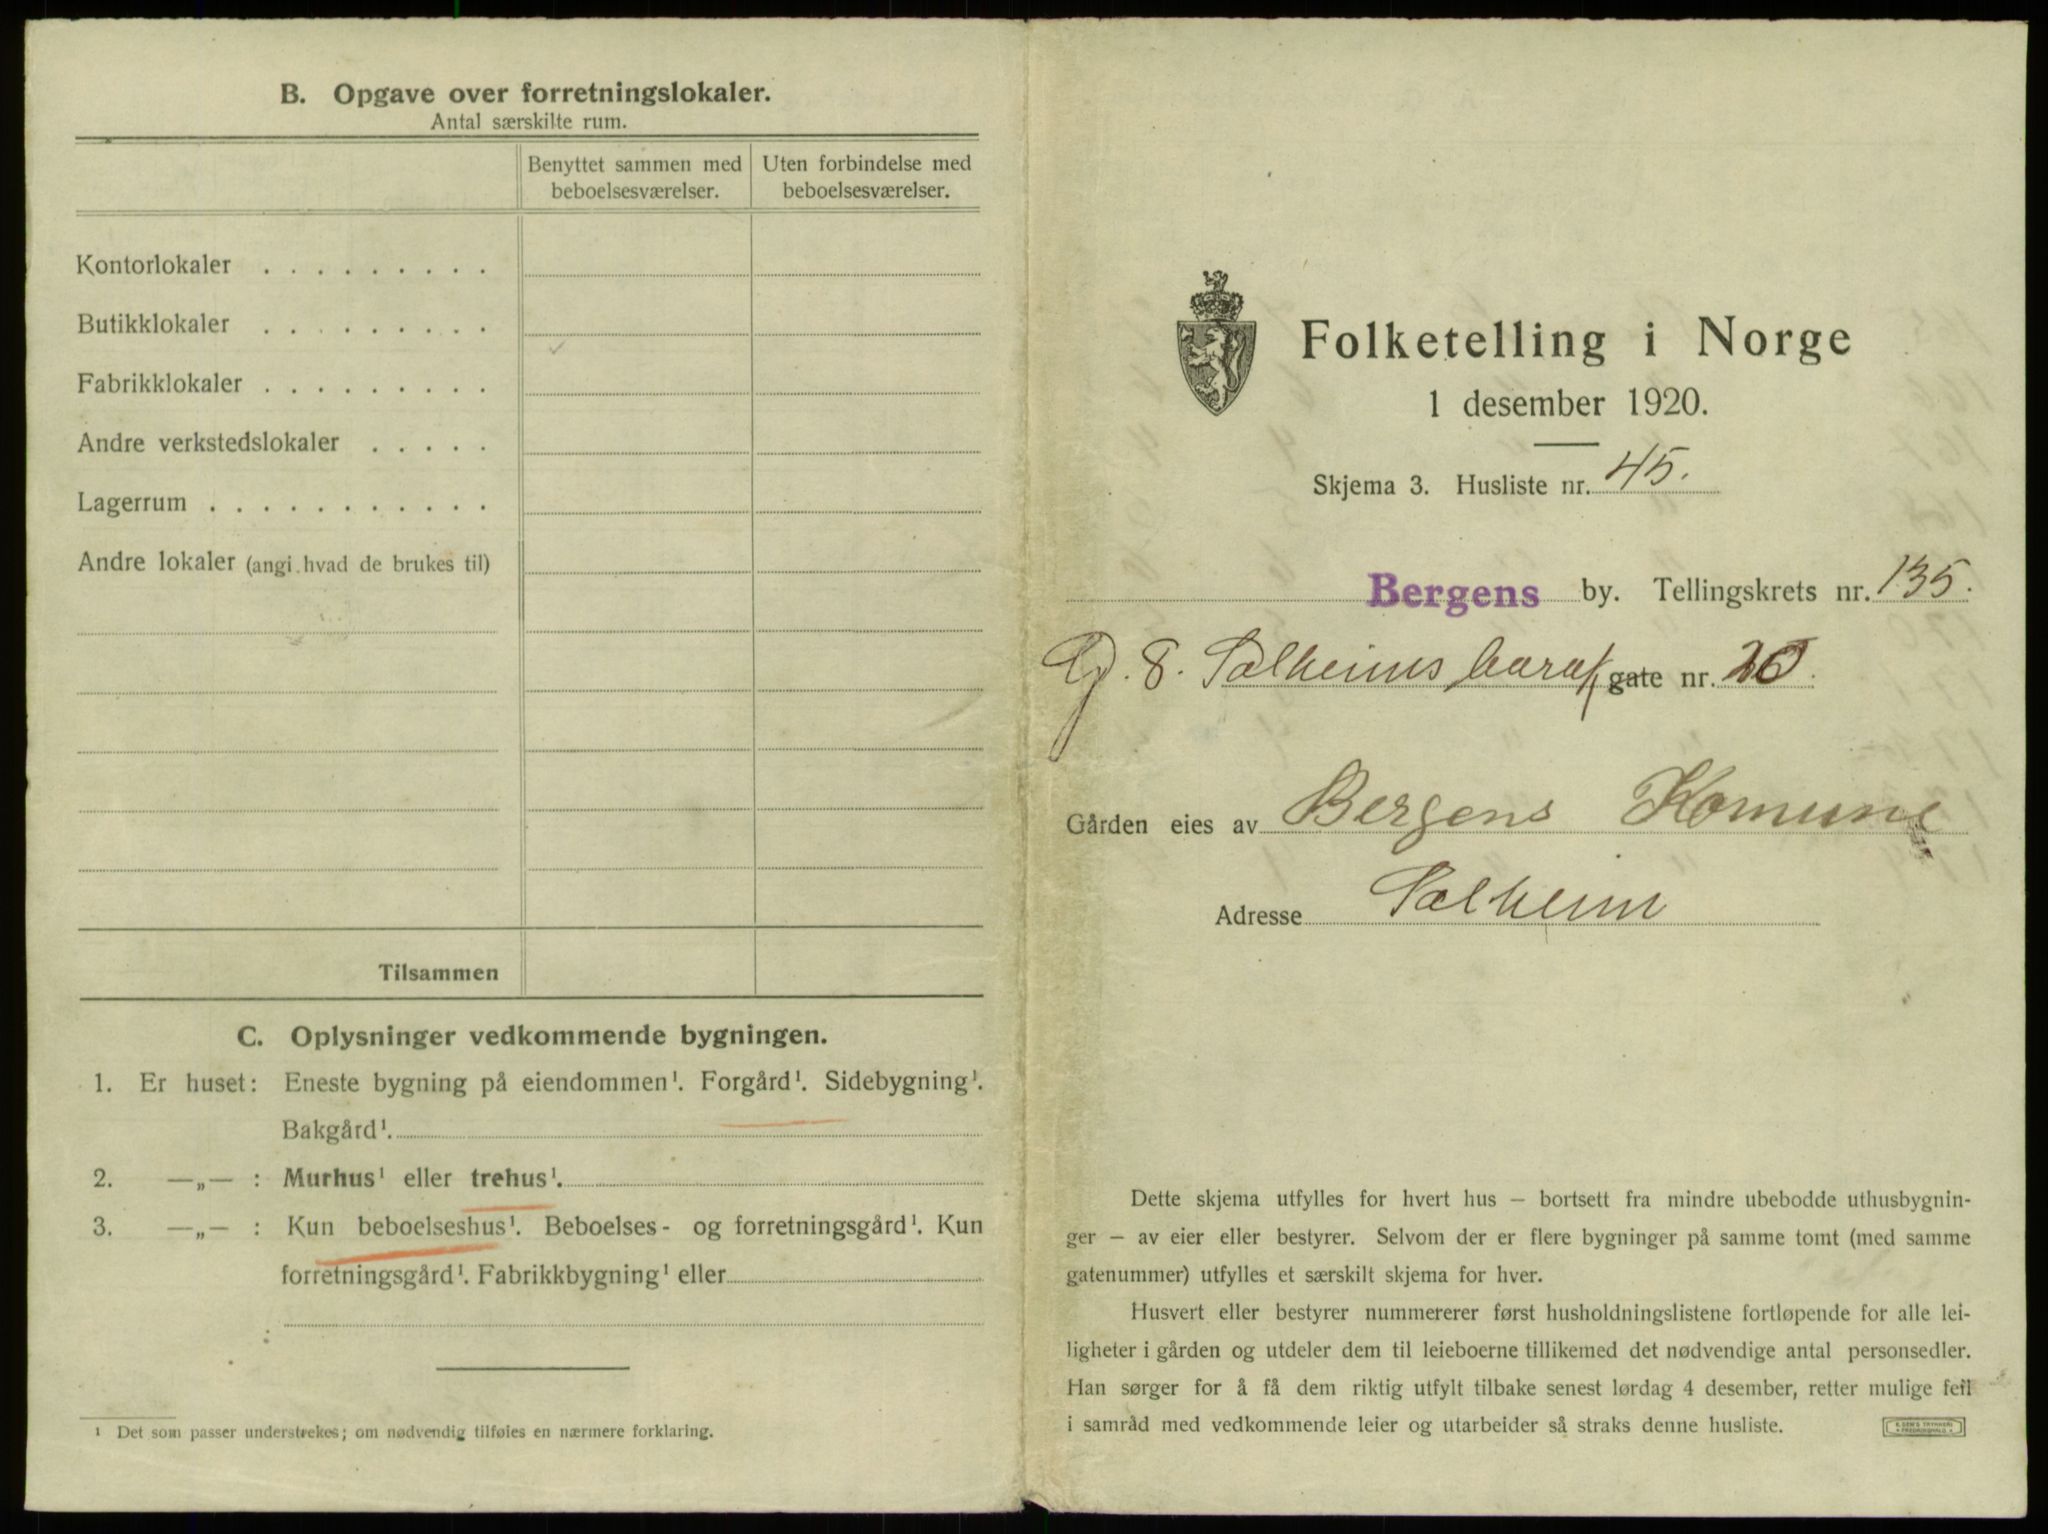 B. Opgave over forretningslokaler.
Antal særskilte rum.
Benyttet sammen med beboelsesværelser.
Uten forbindelse med beboelsesværelser.
Kontorlokaler . . . . . . . . .
Butikklokaler . . . . . . . . .
Fabrikklokaler . . . . . . . . .
Andre verkstedslokaler . . . . .
Lagerrum . . . . . . . . . . .
Andre lokaler (angi hvad de brukes til)
Tilsammen
C. Oplysninger vedkommende bygningen.
1. Er huset: Eneste bygning på eiendommen¹. Forgård¹. Sidebygning¹.
Bakgård¹.
2. —„— : Murhus¹ eller trehus¹.
3. —„— : Kun beboelseshus¹. Beboelses- og forretningsgård¹. Kun
forretningsgård¹. Fabrikkbygning¹ eller
¹ Det som passer understrekes; om nødvendig tilføies en nærmere forklaring.
Folketelling i Norge
1 desember 1920.
Skjema 3. Husliste nr. 45.
Bergens by. Tellingskrets nr. 135.
8. Solheims gate nr. 20.
Gården eies av Bergens Komune
Adresse Solheim
Dette skjema utfylles for hvert hus – bortsett fra mindre ubebodde uthusbygnin-
ger – av eier eller bestyrer. Selvom der er flere bygninger på samme tomt (med samme
gatenummer) utfylles et særskilt skjema for hver.
Husvert eller bestyrer nummererer først husholdningslistene fortløpende for alle lei-
ligheter i gården og utdeler dem til leieboerne tillikemed det nødvendige antal personsedler.
Han sørger for å få dem riktig utfylt tilbake senest lørdag 4 desember, retter mulige feil
i samråd med vedkommende leier og utarbeider så straks denne husliste.